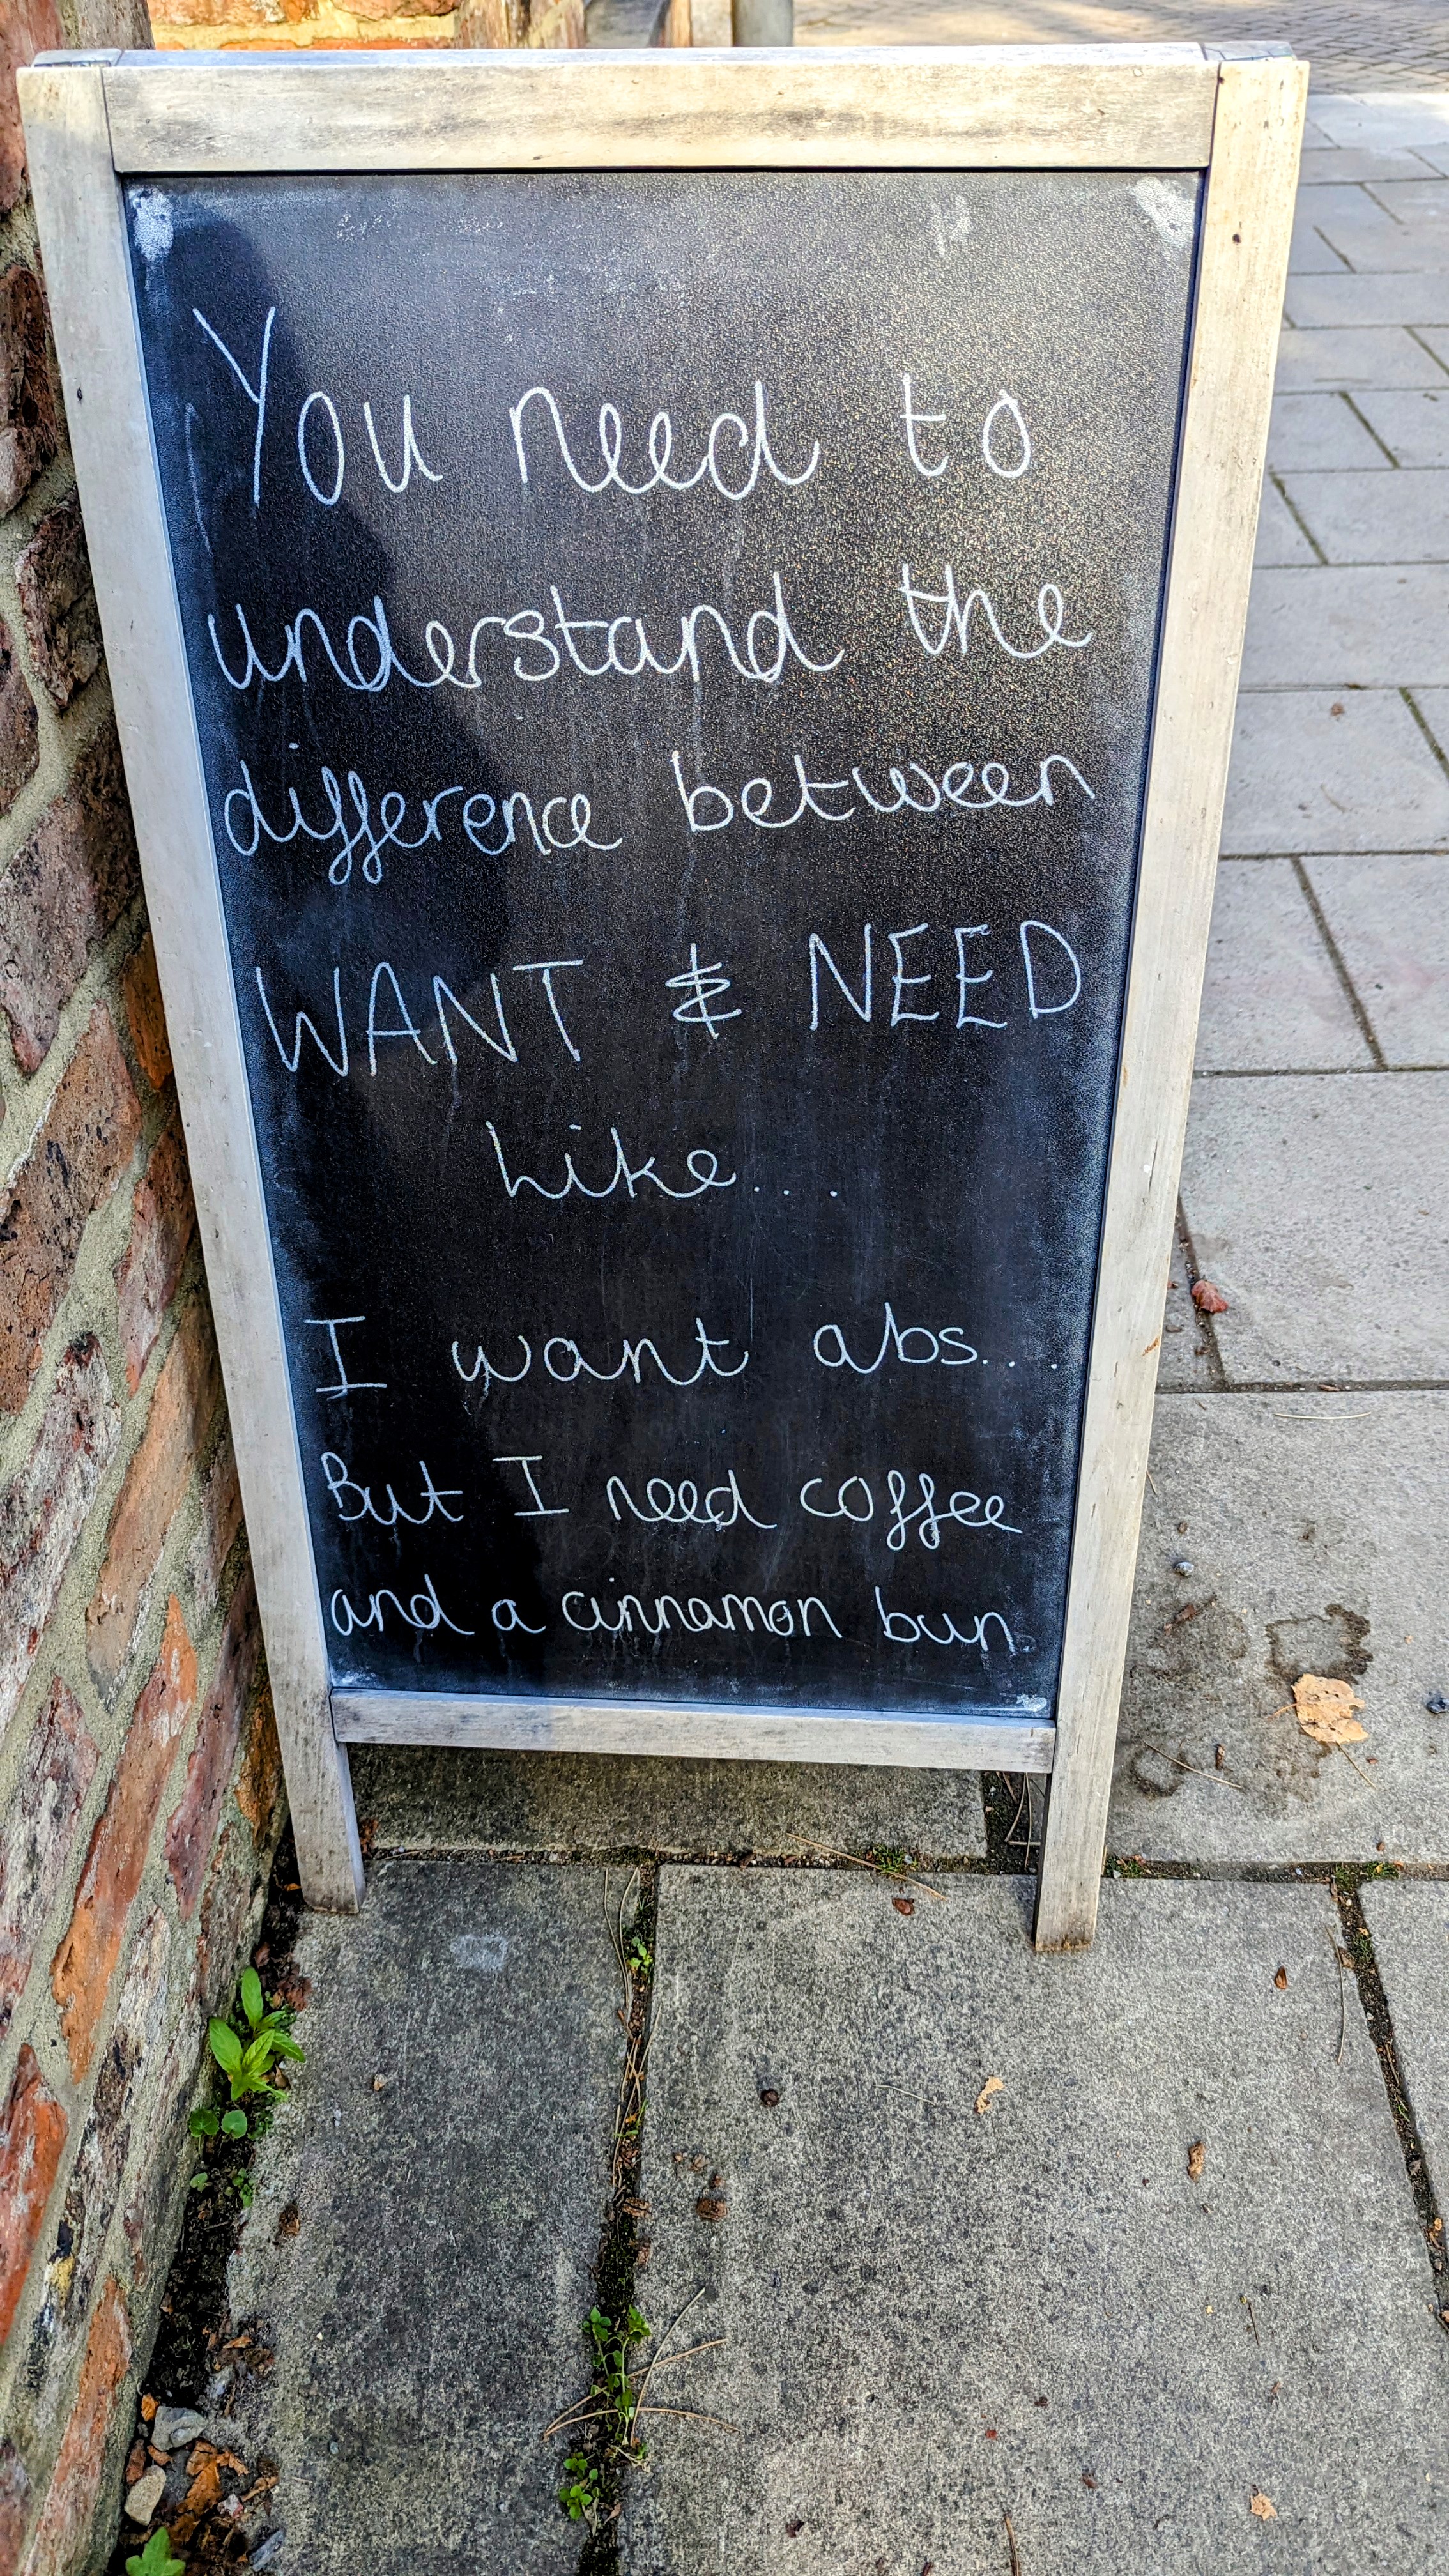 You need to
understand the
difference between
WANT & NEED
Like...
I want abs....
But I need coffee
and a cinnamon bun.